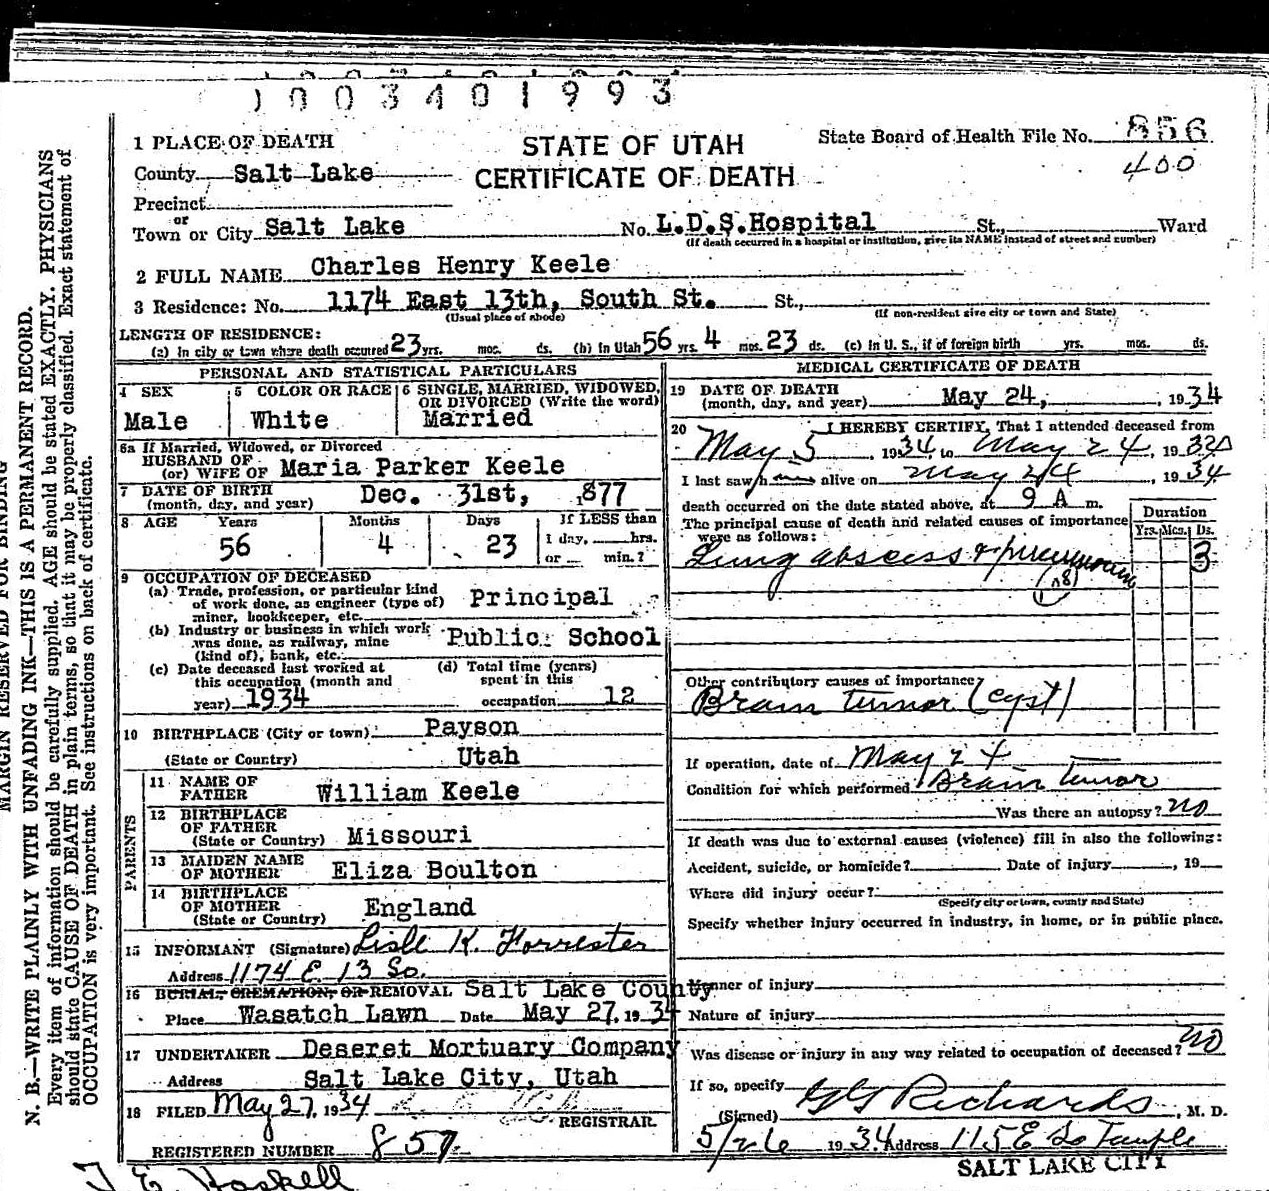 1003401993
1 PLACE OF DEATH
STATE OF UTAH
CERTIFICATE OF DEATH
State Board of Health File No. 856
400
County Salt Lake
Precinct
or
Town or City Salt Lake No. L.D.S.Hospital St., Ward
(If death occurred in a hospital or institution, give its NAME instead of street and number)
2 FULL NAME Charles Henry Keele
3 Residence: No. 1174 East 13th, South St. St.,
(Usual place of abode) (If non-resident give city or town and State)
LENGTH OF RESIDENCE:
(a) In city or town where death occurred 23 yrs. mos. ds. (b) In Utah 56 yrs. 4 mos. 23 ds. (c) In U. S., if of foreign birth yrs. mos. ds.
PERSONAL AND STATISTICAL PARTICULARS
4 SEX
Male
5 COLOR OR RACE
White
6 SINGLE, MARRIED, WIDOWED,
OR DIVORCED (Write the word)
Married
6a If Married, Widowed, or Divorced
HUSBAND OF
(or) WIFE OF Maria Parker Keele
7 DATE OF BIRTH
(month, day, and year) Dec. 31st, 877
8 AGE Years Months Days If LESS than
56 4 23 1 day, hrs.
or min.?
9 OCCUPATION OF DECEASED
(a) Trade, profession, or particular kind
of work done, as engineer (type of)
miner, bookkeeper, etc. Principal
(b) Industry or business in which work
was done, as railway, mine
(kind of), bank, etc. Public School
(c) Date deceased last worked at
this occupation (month and
year) 1934
(d) Total time (years)
spent in this
occupation 12
10 BIRTHPLACE (City or town) Payson
(State or Country) Utah
PARENTS
11 NAME OF
FATHER William Keele
12 BIRTHPLACE
OF FATHER
(State or Country) Missouri
13 MAIDEN NAME
OF MOTHER Eliza Boulton
14 BIRTHPLACE
OF MOTHER
(State or Country) England
15 INFORMANT (Signature) Lisle K. Forrester
Address 1174 E 13 So.
16 BURIAL, CREMATION, OR REMOVAL Salt Lake County
Place Wasatch Lawn Date May 27, 1934
17 UNDERTAKER Deseret Mortuary Company
Address Salt Lake City, Utah
18 FILED May 27, 1934
REGISTRAR
REGISTERED NUMBER 857
T. E. Haskell
MEDICAL CERTIFICATE OF DEATH
19 DATE OF DEATH
(month, day, and year) May 24, , 1934
20 I HEREBY CERTIFY, That I attended deceased from
May 5, 1934, to May 24, 19
I last saw h alive on May 24, 1934
death occurred on the date stated above, at 9 A m.
The principal cause of death and related causes of importance
were as follows:
Duration
Yrs. Mos. Ds.
Lung abscess & pneumonia 3
Other contributory causes of importance?
Brain tumor (cyst)
If operation, date of May 24
Condition for which performed Brain tumor
Was there an autopsy? no
If death was due to external causes (violence) fill in also the following:
Accident, suicide, or homicide? Date of injury , 19
Where did injury occur?
(Specify city or town, county and State)
Specify whether injury occurred in industry, in home, or in public place.
nner of injury
Nature of injury
Was disease or injury in any way related to occupation of deceased? no
If so, specify
(Signed) GG Richards, M. D.
5/26 1934 Address 115 E So Temple
SALT LAKE CITY
MARGIN RESERVED FOR BINDING
N. B.—WRITE PLAINLY WITH UNFADING INK—THIS IS A PERMANENT RECORD.
Every item of information should be carefully supplied. AGE should be stated EXACTLY. PHYSICIANS
should state CAUSE OF DEATH in plain terms, so that it may be properly classified. Exact statement of
OCCUPATION is very important. See instructions on back of certificate.